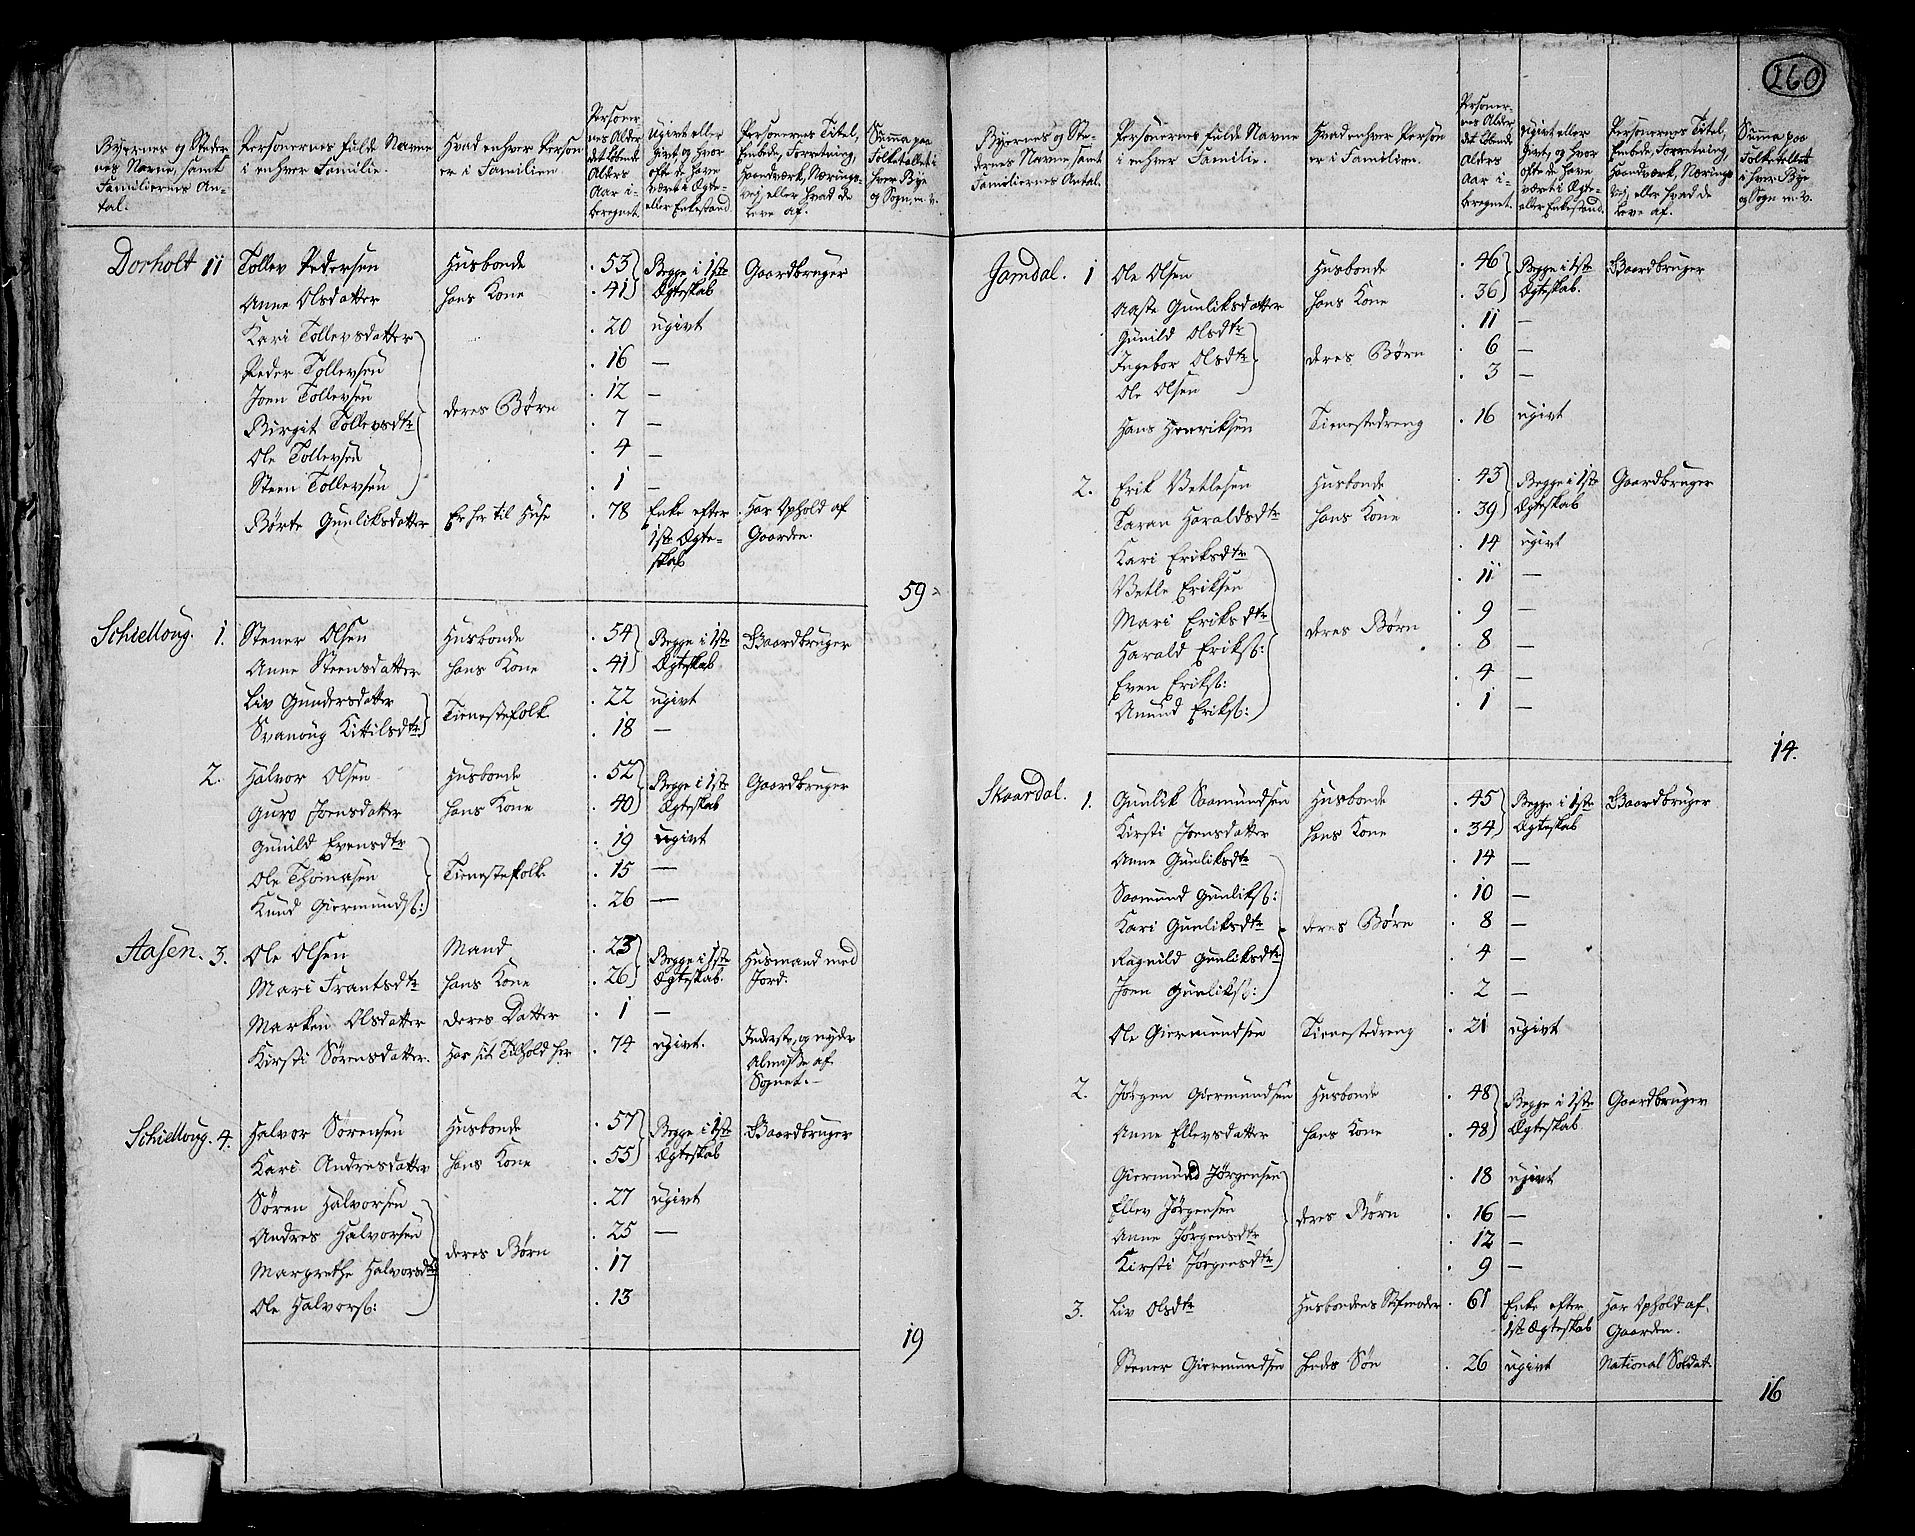 260
Byernes og Steder-
nes Navne, samt
Familiernes An-
tal.
Personernes fulde Navne
i enhver Familie.
Hvad enhver Person
er i Familien.
Personer-
nes Alder
det løbende
Alders
Aar i-
beregnet.
Ugivt eller
Givt, og hvor
ofte de have
været i Ægte-
eller Enkestand.
Personernes Titel,
Embede, Forretning,
Haandværk, Nærings-
vej, eller hvad de
leve af.
Summa paa
Folketallet i
hver Bye
og Sogn, m. v.
Dorholt 11 Tollev Pedersen Husbonde 53 Begge i 1ste Gaardbruger
Anne Olsdatter hans Kone 41 Ægteskab
Kari Tollevsdatter 20 ugivt
Peder Tollevsen 16 —
Joen Tollevsen 12 —
Birgit Tollevsdtr deres Børn 7 —
Ole Tollevsen 4 —
Steen Tollevsen 1 —
Børte Gunliksdatter Er her til Huse 78 Enke efter Har Ophold af
1ste Ægte- Gaarden.
skab
59
Schielloug. 1. Stener Olsen Husbonde 54 Begge i 1ste Gaardbruger
Anne Steensdatter hans Kone 41 Ægteskab
Liv Gundersdatter Tienestefolk 22 ugivt
Svanoug Kittilsdtr 18 —
2. Halvor Olsen Husbonde 52 Begge i 1ste Gaardbruger
Guro Joensdatter hans Kone 40 Ægteskab
Gunild Evensdtr 19 ugivt
Ole Thomasen Tienestefolk 15 —
Knud Giermunds: 26 —
Aasen. 3. Ole Olsen Mand 23 Begge i 1ste Husmand med
Mari Frantsdtr hans Kone 26 Ægteskab. Jord.
Marken Olsdatter deres Datter 1 —
Kirsti Sørensdatter. Har sit Tilhold her 74 ugivt. Inderste, og nyder
Almisse af
Sognet.
Schielloug. 4. Halvor Sørensen Husbonde 57 Begge i 1ste Gaardbruger
Kari Andresdatter hans Kone 55 Ægteskab
Søren Halvorsen 27 ugivt
Andres Halvorsen 25 —
Margrethe Halvorsdtr deres Børn 17
Ole Halvors: 13
19
Byernes og Ste-
dernes Navne samt
Familiernes Antal.
Personernes fulde Navne
i enhver Familie.
Hvad enhver Person
er i Familien.
Personer-
nes Alder
det løbende
Alders
Aar i-
beregnet.
Ugivt eller
Givt, og hvor
ofte de have
været i Ægte-
eller Enkestand.
Personernes Titel,
Embede, Forretning,
Haandværk, Nærings-
vej, eller hvad de
leve af.
Summa paa
Folketallet
i hver Bye
og Sogn m. v.
Jamdal. 1 Ole Olsen Husbonde 46 Begge i 1ste Gaardbruger
Aaste Gunliksdatter hans Kone 36 Ægteskab.
Gunild Olsdtr 11 —
Ingebor Olsdtr deres Børn 6 —
Ole Olsen 3 —
Hans Henriksen Tienestedreng 16 ugivt
2. Erik Vetlesen Husbonde 43 Begge i 1ste Gaardbruger
Taran Haraldsdtr hans Kone 39 Ægteskab
Kari Eriksdtr 14 ugivt
Vetle Eriksen 11 —
Mari Eriksdtr deres Børn 9 —
Harald Eriks: 8 —
Even Eriks: 4 —
Anund Eriks: 1 —
14.
Skaardal. 1. Gunlik Saamundsen Husbonde 45 Begge i 1ste Gaardbruger
Kirsti Joensdatter hans Kone 34 Ægteskab
Anne Gunliksdtr 14 —
Saamund Gunliks: 10 —
Kari Gunliksdtr deres Børn 8 —
Ragnild Gunliksdtr 4 —
Joen Gunliks: 2 —
Ole Giermundsen Tienestedreng 21 ugivt
2. Jørgen Giermundsen Husbonde 48 Begge i 1ste Gaardbruger
Anne Ellevsdatter hans Kone 48 Ægteskab
Giermund Jørgensen 18 ugivt
Ellev Jørgensen deres Børn 16 —
Anne Jørgensdtr 12 —
Kirsti Jørgensdtr 9 —
3. Liv Olsdtr Husbondens Stifmoder 61 Enke efter Har Ophold af
1ste Ægteskab Gaarden.
Stener Giermundsen hendes Søn 26 ugivt National Soldat.
16